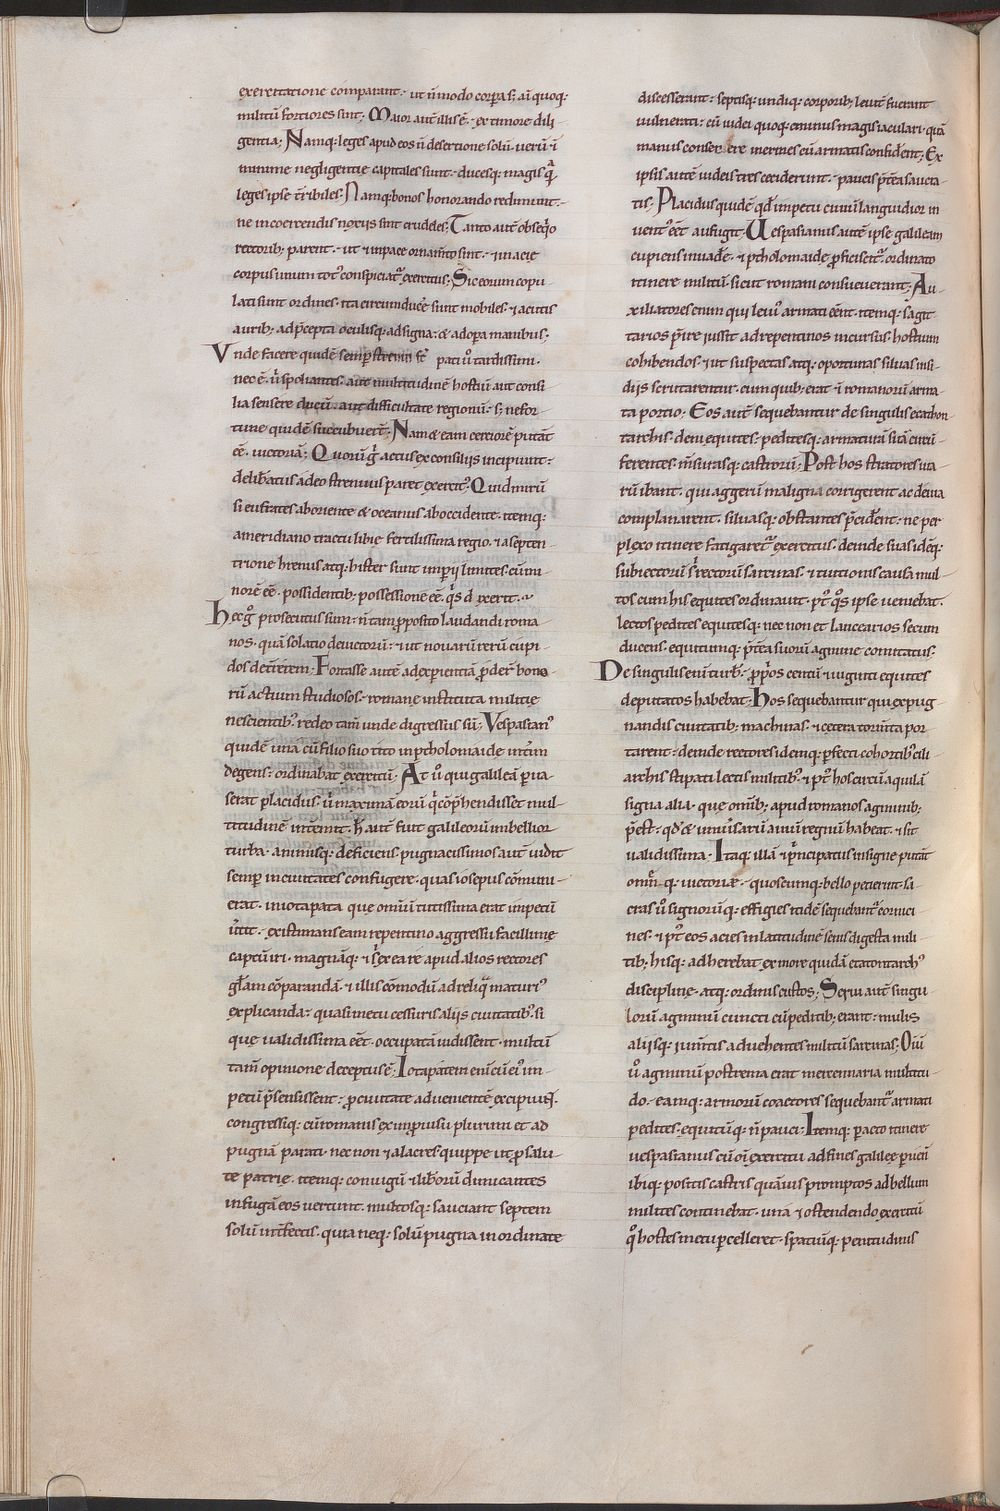 exercitatione comparant · ut n̄ modo corpa s; ai quoq;
militū fortiores sint; Maior autē illis ē · ex timore dili
gentia; Namq; leges apud eos n̄ desertione solū · verū ⁊
minime negligentie capitales sunt · ducesq; magis qͣ
leges ipse tr̄ribiles; Namq; bonos honorando redimunt ·
ne in coercendis noxiis sint crudeles; Tanto autē obseqͦo
rectorib; parent · ut ⁊ in pace ornam̄to sint · ⁊ in acie
corpus unum tot᷒ conspiciat᷑ exercitus; Sic eorum copu
lati sunt ordines · ita circumducē sunt mobiles · ⁊ acutis
aurib; ad p̄cepta oculisq; ad signa · & ad opera manibus;
Vnde facere quidē semp strenui st̄ pati ū tardissimi ·
nec ē · ū spoliantes · aut multitudinē hostiū aut consi
lia sensere ducū · aut difficultate regionū · s; ne for
tune quidē succubuer̄t; Nam & eam certiorē putāt
ēē · victoriā; Quorū gͥ actus ex consiliis incipiunt ·
delib̄atus adeo strenuus paret exercit᷒ · Quid mirū
si eufrates ab oriente & oceanus ab occidente · itemq;
a meridiano tractu libie fertilissima regio · ⁊ a septen
trione hrenus atq; hister sunt imperii limites · cū mi
norē ēē · possidentib; possessionē ēē · qͥs dixerit ·
Hec gͥ prosecutus sum · n̄ tam proposito laudandi roma
nos · quā solatio devictorū · ⁊ ut novarū rerū cupi
dos det̄rerem; Fortasse autē ad expientiā p̄der̄ bona
rū actium studiosos · romane instituta militie
nescientib᷒ · redeo tam̄ unde digressus sū; Vespasian᷒
quidē una cū filio suo tito in ptholomaide int̄im
degens · ordinabat exercitū; At ū qui galileā p̄va
serat placidus · ū maximā eorū qͥ cōp̄hendisset mul
titudinē int̄emit · h̄ autē fuit galileorū imbellior
turba · animisq; deficiens pugnacissimos autē vidit
semp in civitates confugere · quas iosepus cōmuni
erat · in iotapata que omniū tutissima erat impetū
ūtit · existimans eam repentino aggressu facillime
captū iri · magnāq; ⁊ s͛ ex ea re apud alios rectores
gl̄am cōparandā · ⁊ illis cōmodū ad reliqͣ matur᷒
explicanda · quasi metu cessuris aliis civitatib᷒ · si
que validissima eēt · occupatā vidissent · multū
tam̄ opinione deceptus ē; Iotapatem eni cū ei᷒ im
petū p̄sensissent · pro civitate advenientē excipiunt ·
congressiq; cū romanis ex improvisu plurimi et ad
pugnā parati · nec non ⁊ alacres quippe ut pro salu
te patrie · itemq; coniugū ⁊ lib̄orū dimicantes
in fugā eos vertunt · multosq; sauciant septem
solū int̄fectis · quia neq; solū pugna inordinate
discesserant · septisq; undiq; corporib; leuit̄ fuerant
vulnerati · cū iudei quoq; eminus magis iaculari · quā
manus conserere inermes cū armatis confid̄ent; Ex
ipsis autē iudeis tres ceciderunt · paucis p̄t̄ea saucia
tis · Placidus quidē qd̄ impetu cum languidior in
vent᷒ eēt aufugit; Vespasianus autē ipse galileam
cupiens invad̄e · ⁊ ptholomaide p̄ficiscit᷑ ordinato
itinere militū · sicut romani consueverant; Au
xiliatores enim qui levi᷒ armati eēnt · itemq; sagit
tarios p̄ire iussit ad repentinos incursus hostium
cohibendos · ⁊ ut suspectas atq; oportunas silvas insi
diis scrutarentur · cum quib; erat ⁊ romanorū arma
ta portio; Eos autē sequebantur de singulis ecathon
tarchis · deni equites · peditesq; armaturā suā circū
ferentes · m̄surasq; castrorū; Post hos stratores via
rū ibant · qui aggerū maligna corrigerent ac devia
complanarent · silvasq; obstantes p̄cid̄ent · ne per
plexo itinere fatigaret᷑ exercitus · deinde suas idēq;
subiectorū s͛ rectorū sarcinas · ⁊ tuitionis causa mul
tos cum his equites ordinavit · pt᷒ qͦs ipse veniebat ·
lectos pedites equitesq; nec non et lancearios secum
ducens · equitumq; p̄t̄ea suorū agmine comitatus;
De singulis enī turb᷒ · p̄pͥos centū ⁊ viginti equites
deputatos habebat · Hos sequebantur qui expug
nandis civitatib; machinas · ⁊ cetera torm̄ta por
tarent · deinde rectores idemq; p̄fecti cohortib᷒ cili
archis stipati lectis militib᷒ · ⁊ pt᷒ hos circū aquilā
signa alia · que omib; apud romanos agminib;
p̄est · qd̄ & univ̄sarū aviū regnū habeat · ⁊ sit
validissima · Itaq; illā ⁊ p̄ncipatus insigne putāt
om̄ q; victoriæ · quoscumq; bello petierint · sa
cras ū signorūq; effigies itidē sequebant᷑ cornici
nes · ⁊ pt᷒ eos acies in latitudinē senis digesta mili
tib; hisq; adherebat ex more quidā etatontarch᷒
discipline · atq; ordinis custos; Servi autē singu
lorū agminū cuncti cū peditib; erant · mulis
aliisq; ium̄tis advehentes militū sarcinas; Oiū
ū agminū postrema erat mercennaria multitu
do · eamq; armorū coactores sequebant᷑ armati
pedites · equitūq; n̄ pauci · Itemq; pacto itinere
vespasianus cū oī exercitu ad fines galilee p̄venit
ibiq; positis castris quāvis promptos ad bellum
milites continebat · una ⁊ ostendendo exercitū
qͦ hostes metu p̄celleret · spatiūq; penitudinis